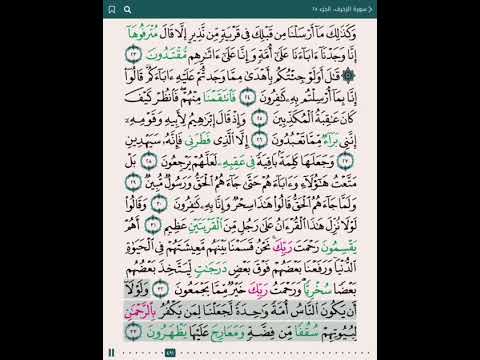 سورة الزخرف، الجزء ٢٥
وَكَذَٰلِكَ مَآ أَرْسَلْنَا مِن قَبْلِكَ فِى قَرْيَةٍ مِّن نَّذِيرٍ إِلَّا قَالَ مُتْرَفُوهَآ
إِنَّا وَجَدْنَآ ءَابَآءَنَا عَلَىٰٓ أُمَّةٍ وَإِنَّا عَلَىٰٓ ءَاثَٰرِهِم مُّقْتَدُونَ ٢٣
۞ قَٰلَ أَوَلَوْ جِئْتُكُم بِأَهْدَىٰ مِمَّا وَجَدتُّمْ عَلَيْهِ ءَابَآءَكُمْ قَالُوٓا۟
إِنَّا بِمَآ أُرْسِلْتُم بِهِۦ كَٰفِرُونَ ٢٤ فَٱنتَقَمْنَا مِنْهُمْ فَٱنظُرْ كَيْفَ
كَانَ عَٰقِبَةُ ٱلْمُكَذِّبِينَ ٢٥ وَإِذْ قَالَ إِبْرَٰهِيمُ لِأَبِيهِ وَقَوْمِهِۦٓ
إِنَّنِى بَرَآءٌ مِّمَّا تَعْبُدُونَ ٢٦ إِلَّا ٱلَّذِى فَطَرَنِى فَإِنَّهُۥ سَيَهْدِينِ
٢٧ وَجَعَلَهَا كَلِمَةًۢ بَاقِيَةً فِى عَقِبِهِۦ لَعَلَّهُمْ يَرْجِعُونَ ٢٨ بَلْ
مَتَّعْتُ هَٰٓؤُلَآءِ وَءَابَآءَهُمْ حَتَّىٰ جَآءَهُمُ ٱلْحَقُّ وَرَسُولٌ مُّبِينٌ ٢٩
وَلَمَّا جَآءَهُمُ ٱلْحَقُّ قَالُوا۟ هَٰذَا سِحْرٌ وَإِنَّا بِهِۦ كَٰفِرُونَ ٣٠ وَقَالُوا۟
لَوْلَا نُزِّلَ هَٰذَا ٱلْقُرْءَانُ عَلَىٰ رَجُلٍ مِّنَ ٱلْقَرْيَتَيْنِ عَظِيمٍ ٣١ أَهُمْ
يَقْسِمُونَ رَحْمَتَ رَبِّكَ نَحْنُ قَسَمْنَا بَيْنَهُم مَّعِيشَتَهُمْ فِى ٱلْحَيَوٰةِ
ٱلدُّنْيَا وَرَفَعْنَا بَعْضَهُمْ فَوْقَ بَعْضٍ دَرَجَٰتٍ لِّيَتَّخِذَ بَعْضُهُم
بَعْضًا سُخْرِيًّا وَرَحْمَتُ رَبِّكَ خَيْرٌ مِّمَّا يَجْمَعُونَ ٣٢ وَلَوْلَآ
أَن يَكُونَ ٱلنَّاسُ أُمَّةً وَٰحِدَةً لَّجَعَلْنَا لِمَن يَكْفُرُ بِٱلرَّحْمَٰنِ
لِبُيُوتِهِمْ سُقُفًا مِّن فِضَّةٍ وَمَعَارِجَ عَلَيْهَا يَظْهَرُونَ ٣٣
٤٩١